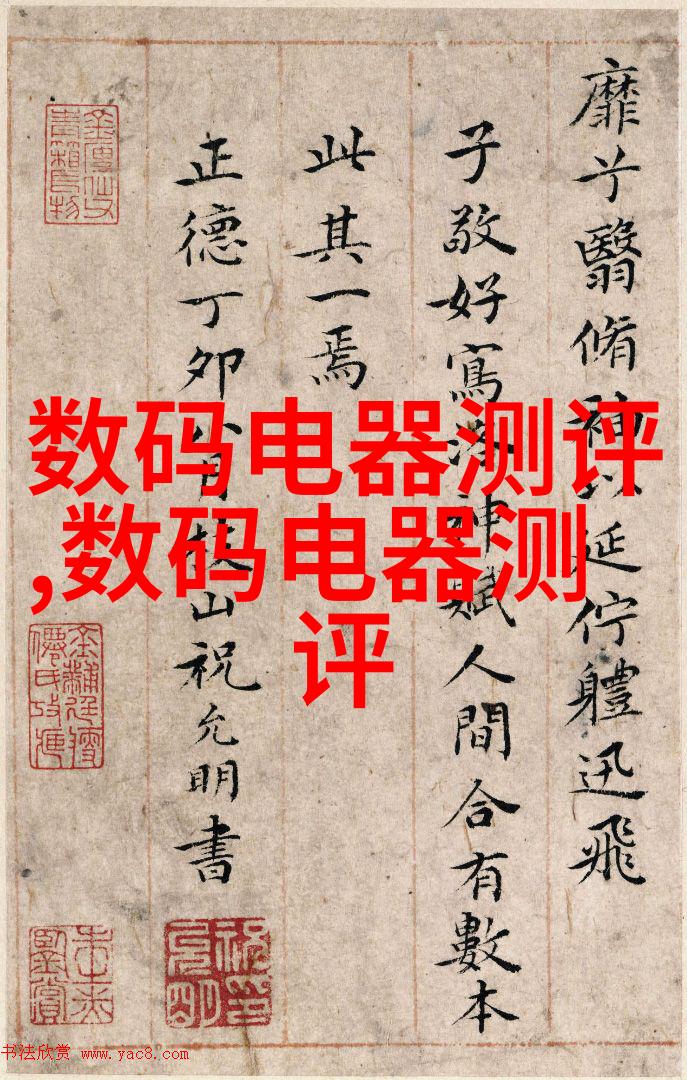 靡兮翳脩袖以延佇體迅飛
子敬好寫洛神賦人間合有數本
此其一焉
正德丁卯八月枝山祝允明書
数码电器测评
,数码电器测
评
书法欣赏 www.yac8.com